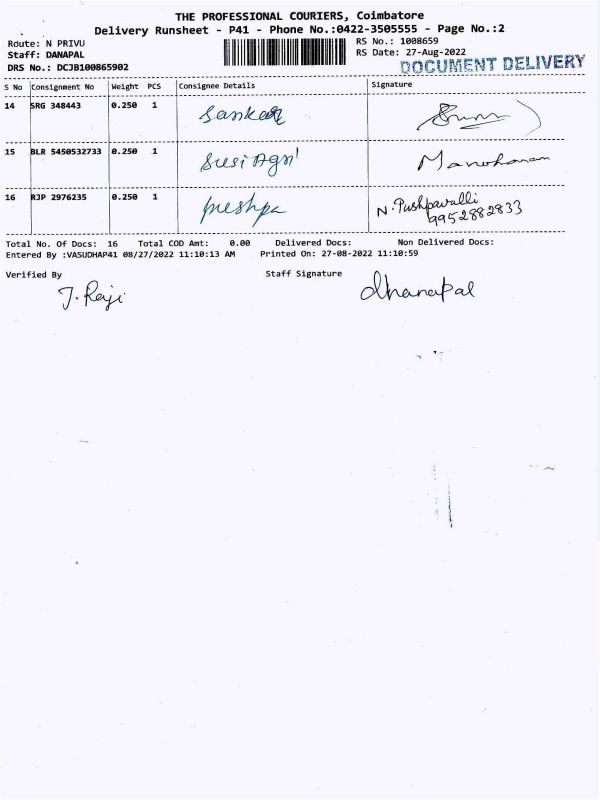 THE PROFESSIONAL COURIERS, Coimbatore
Delivery Runsheet - P41 - Phone No.:0422-3505555 - Page No.:2
Route: N PRIVU RS No.: 1008659
Staff: DANAPAL RS Date: 27-Aug-2022
DRS No.: DCJB100865902 DOCUMENT DELIVERY
S No Consignment No Weight PCS Consignee Details Signature
14 SRG 348443 0.250 1 Sankar
15 BLR 5450532733 0.250 1 Susi Agri Manoharan
16 RJP 2976235 0.250 1 N. Pushpavalli
9952882833
Total No. Of Docs: 16 Total COD Amt: 0.00 Delivered Docs: Non Delivered Docs:
Entered By :VASUDHAP41 08/27/2022 11:10:13 AM Printed On: 27-08-2022 11:10:59
Verified By Staff Signature
J. Raji dhanapal